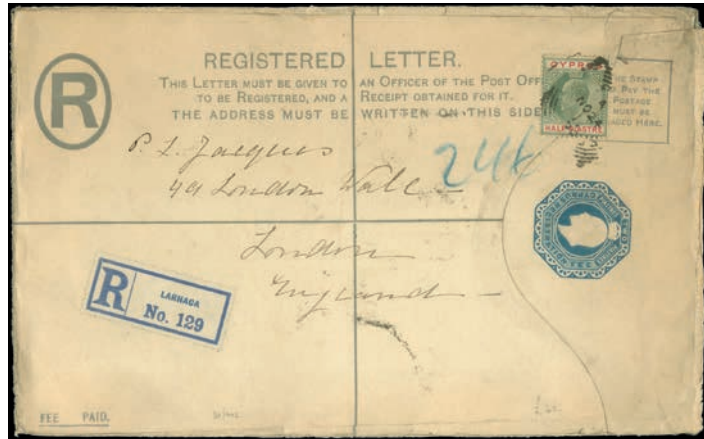 R
REGISTERED LETTER.
THIS LETTER MUST BE GIVEN TO AN OFFICER OF THE POST OFF
TO BE REGISTERED, AND A RECEIPT OBTAINED FOR IT.
THE ADDRESS MUST BE WRITTEN ON THIS SIDE
CYPRUS
HALF PIASTRE
THE STAMP
TO PAY THE
POSTAGE
MUST BE
PLACED HERE.
P. L. Jacques
49 London Wall
London
England
R
LARNACA
No. 129
FEE PAID.